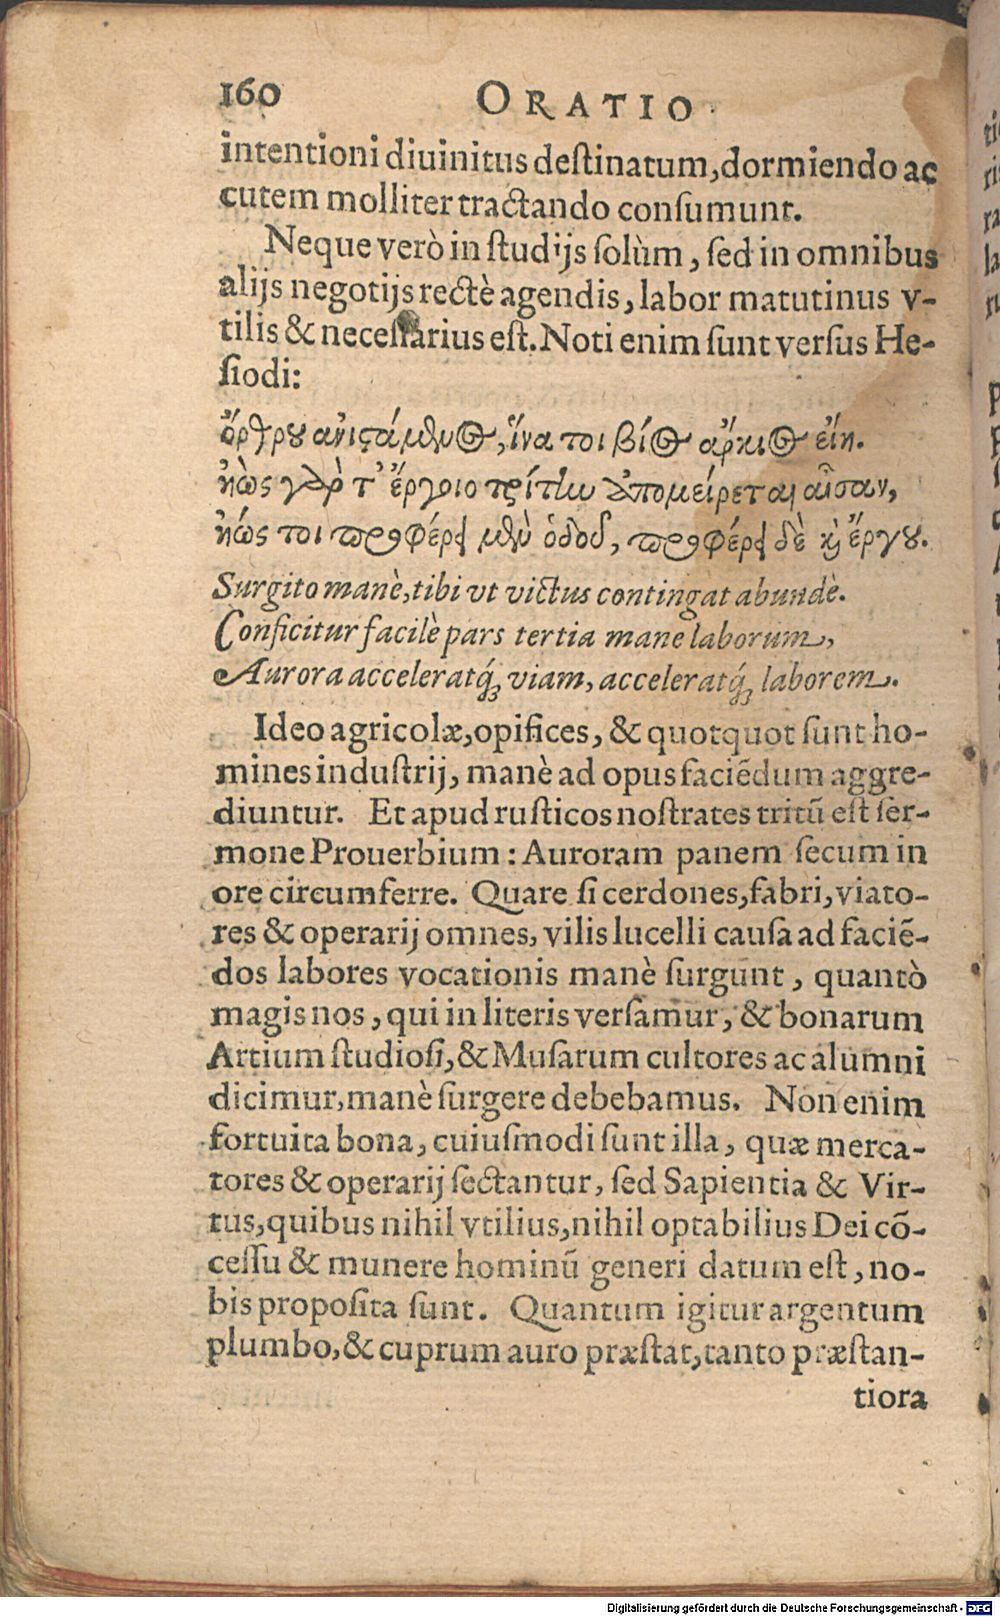 160 ORATIO.
intentioni diuinitus deſtinatum, dormiendo ac
cutem molliter tractando conſumunt.
Neque verò in ſtudijs ſolùm, ſed in omnibus
alijs negotijs rectè agendis, labor matutinus v-
tilis & neceſſarius eſt. Noti enim ſunt verſus He-
ſiodi:
ὄρθρου ἀνιστάμενος, ἵνα τοι βίος ἄρκιος εἴη.
ἠὼς γὰρ τ' ἔργοιο τρίτην ἀπομείρεται αἶσαν,
ἠώς τοι προφέρει μὲν ὁδοῦ, προφέρει δὲ καὶ ἔργου.
Surgito manè, tibi vt victus contingat abundè.
Conficitur facilè pars tertia mane laborum,
Aurora acceleratq́; viam, acceleratq́; laborem.
Ideo agricolæ, opifices, & quotquot ſunt ho-
mines induſtrij, manè ad opus faciēdum aggre-
diuntur. Et apud ruſticos noſtrates tritū eſt ſèr-
mone Prouerbium: Auroram panem ſecum in
ore circumferre. Quare ſi cerdones, fabri, viato-
res & operarij omnes, vilis lucelli cauſa ad faciē-
dos labores vocationis manè ſurgunt, quantò
magis nos, qui in literis verſamur, & bonarum
Artium ſtudioſi, & Muſarum cultores ac alumni
dicimur, manè ſurgere debebamus. Non enim
fortuita bona, cuiuſmodi ſunt illa, quæ merca-
tores & operarij ſectantur, ſed Sapientia & Vir-
tus, quibus nihil vtilius, nihil optabilius Dei cō-
ceſſu & munere hominū generi datum eſt, no-
bis propoſita ſunt. Quantum igitur argentum
plumbo, & cuprum auro præſtat, tanto præſtan-
tiora
Digitalisierung gefördert durch die Deutsche Forschungsgemeinschaft - DFG